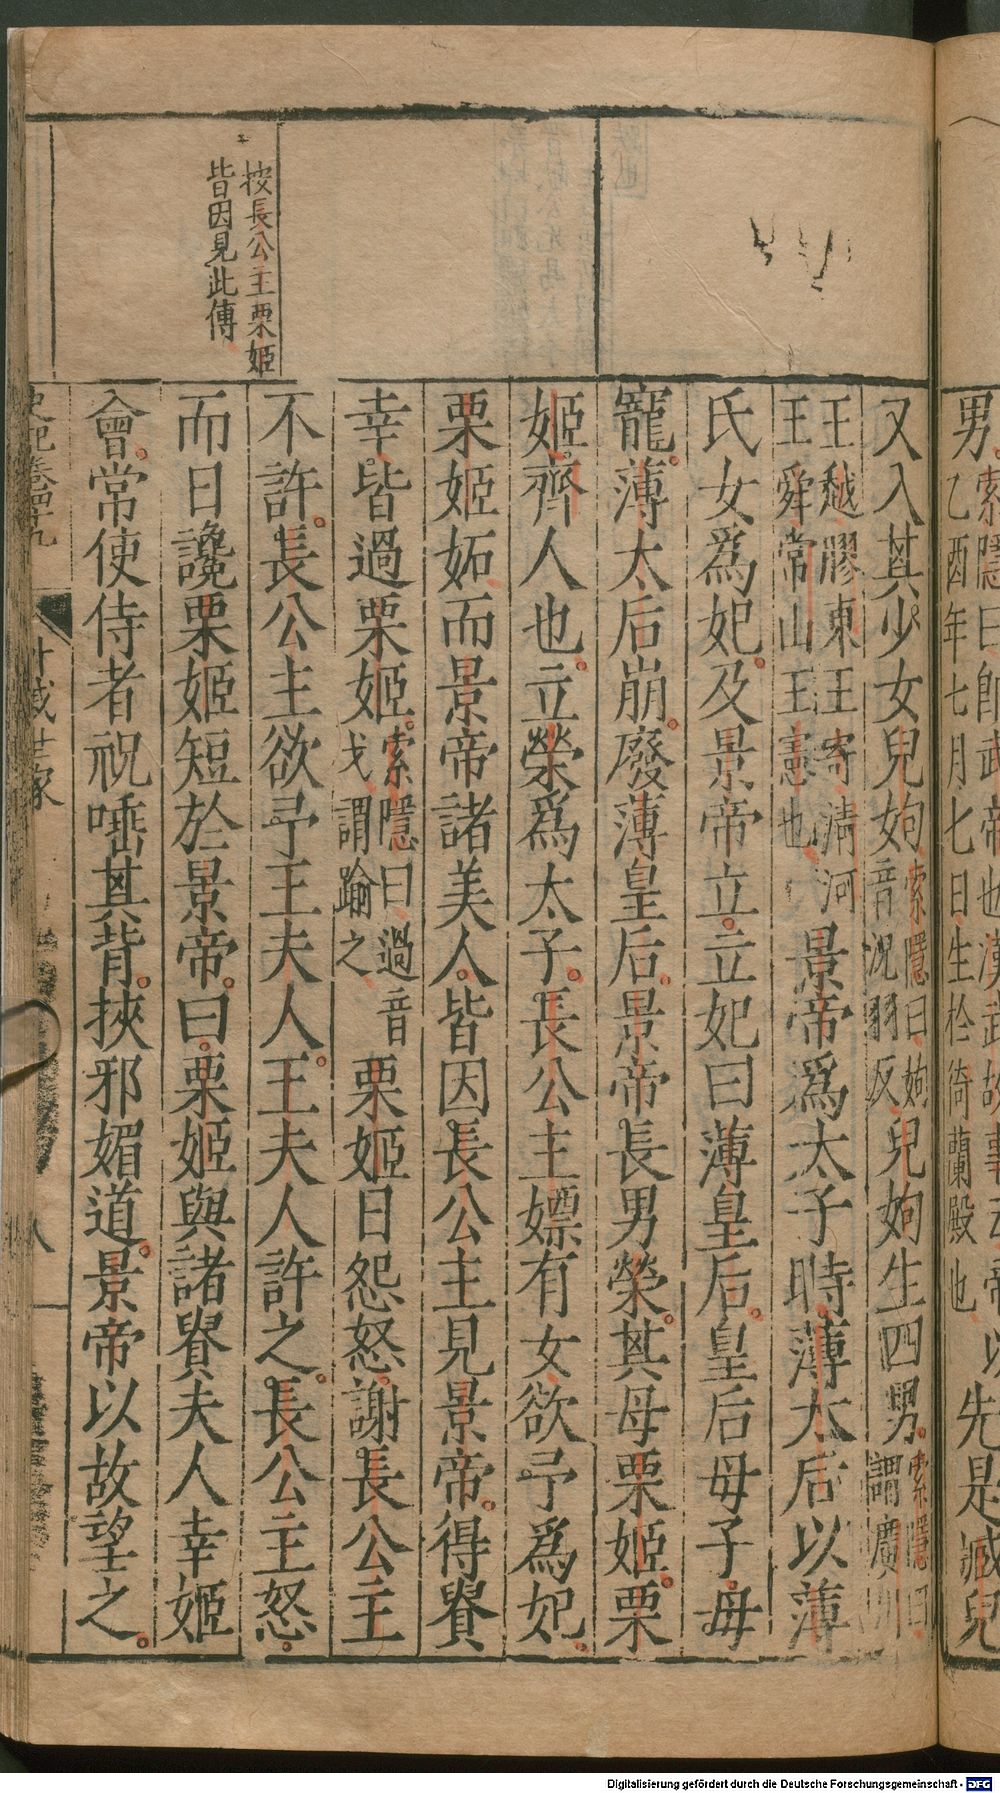 男索隱曰即武帝也漢武故事云帝以
乙酉年七月七日生於猗蘭殿也
先是臧兒
又入其少女兒姁索隱曰姁音況羽反兒姁生四男索隱曰謂廣川
王越膠東王寄清河王舜常山王憲也景帝爲太子時薄太后以薄
氏女爲妃及景帝立立妃曰薄皇后皇后毋子毋
寵薄太后崩廢薄皇后景帝長男榮其母栗姬栗
姬齊人也立榮爲太子長公主嫖有女欲予爲妃
栗姬妬而景帝諸美人皆因長公主見景帝得貴
幸皆過栗姬索隱曰過音戈謂踰之栗姬日怨怒謝長公主
不許長公主欲予王夫人王夫人許之長公主怒
而日讒栗姬短於景帝曰栗姬與諸貴夫人幸姬
會常使侍者祝唾其背挾邪媚道景帝以故望之
按長公主栗姬
皆因見此傳
史記卷四十九
外戚世家
八
Digitalisierung gefördert durch die Deutsche Forschungsgemeinschaft - DFG